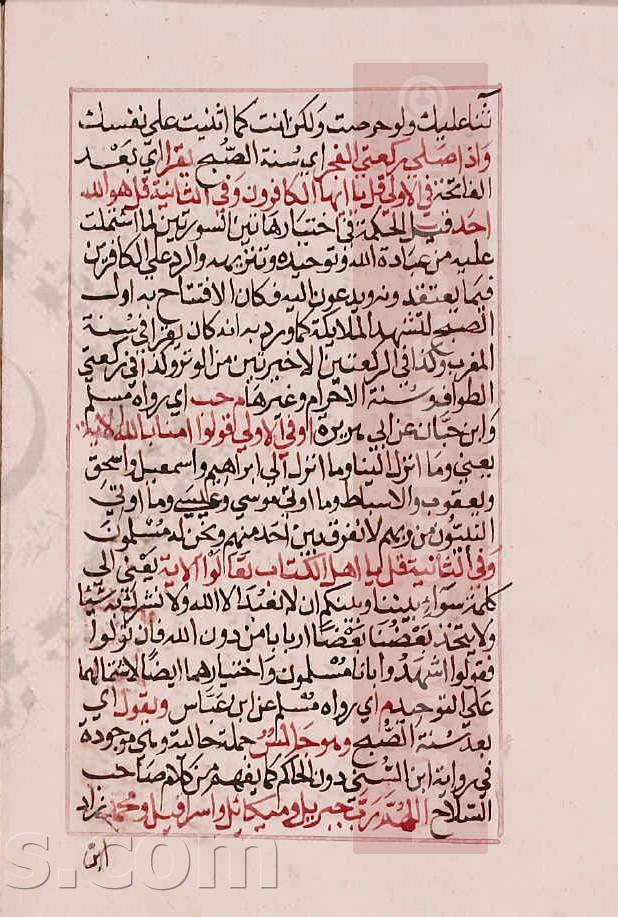 ثناء عليك ولو حرصت ولكن انت كما اثنيت علي نفسك
واذا صلي ركعتي الفجر اي سنة الصبح يقرا اي بعد
الفاتحة في الاولي قل يا ايها الكافرون وفي الثانية قل هو الله
احد قيل الحكمة في اختيار هاتين السورتين لما اشتملت
عليه من عبادة الله وتوحيده وتنزيهه والرد علي الكافرين
فيما يعتقدونه ويدعون اليه فكان الافتتاح به اول
الصبح لتشهد الملايكة كما ورد به انه كان يقرا في سنة
المغرب وكذا في الركعتين الاخيرتين من الوتر وكذا في ركعتي
الطواف وسنة الاحرام وغيرها م حب اي رواه مسلم
وابن حبان عن ابي هريرة او في الاولي قولوا امنا بالله الاية
يعني وما انزل الينا وما انزل الي ابراهيم واسمعيل واسحق
ويعقوب والاسباط وما اوتي موسي وعيسي وما اوتي
النبيون من ربهم لا نفرق بين احد منهم ونحن له مسلمون
وفي الثانية قل يا اهل الكتاب تعالوا الاية يعني الي
كلمة سواء بيننا وبينكم ان لا نعبد الا الله ولا نشرك به شيئا
ولا يتخذ بعضنا بعضا اربابا من دون الله فان تولوا
فقولوا اشهدوا بانا مسلمون واختيارهما ايضا لاشتمالهما
علي التوحيد م اي رواه مسلم عن ابن عباس ويقول اي
بعد سنة الصبح وهو جالس جملة حالية وهي موجودة
في رواية ابن السني دون الحاكم كما يفهم من كلام صاحب
السلاح اللهم رب جبريل وميكائيل واسرافيل ومحمد زاد
ابن
s.com